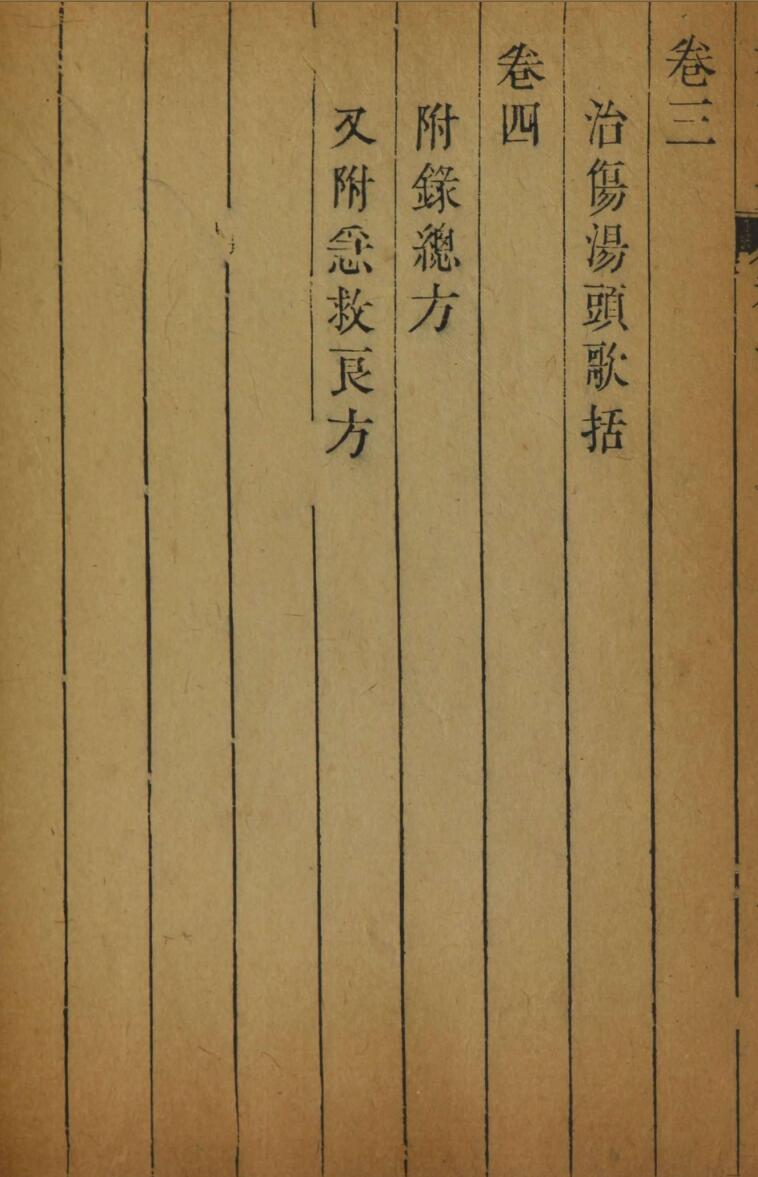 卷三
治傷湯頭歌括
卷四
附錄總方
又附急救良方